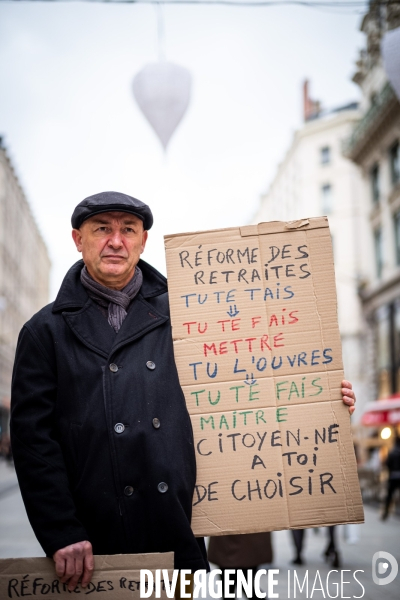 RÉFORME DES
RETRAITES
TU TE TAIS
TU TE FAIS
METTRE
TU L'OUVRES
TU TE FAIS
MAITRE
CITOYEN-NE
A TOI
DE CHOISIR
RÉFORME-DES RE
DIVERGENCE IMAGES
D